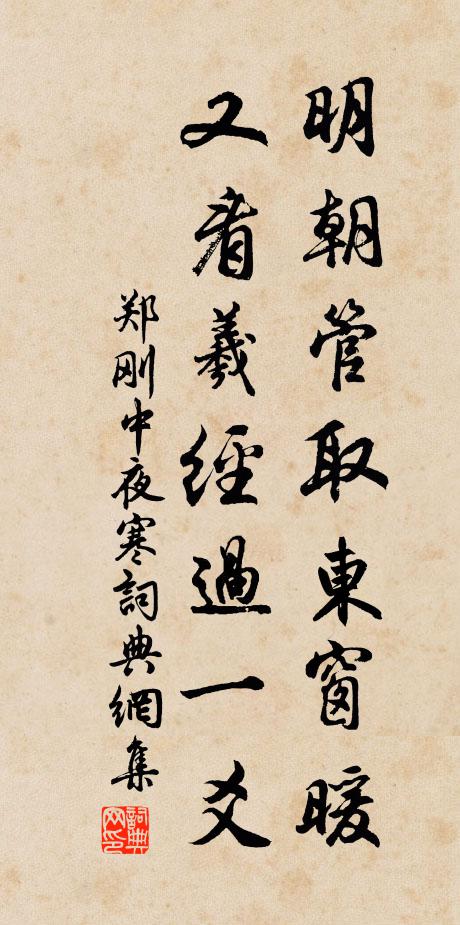 明朝管取東窗暖
又看羲經過一爻
郑刚中夜寒詞典網集
詞典网印